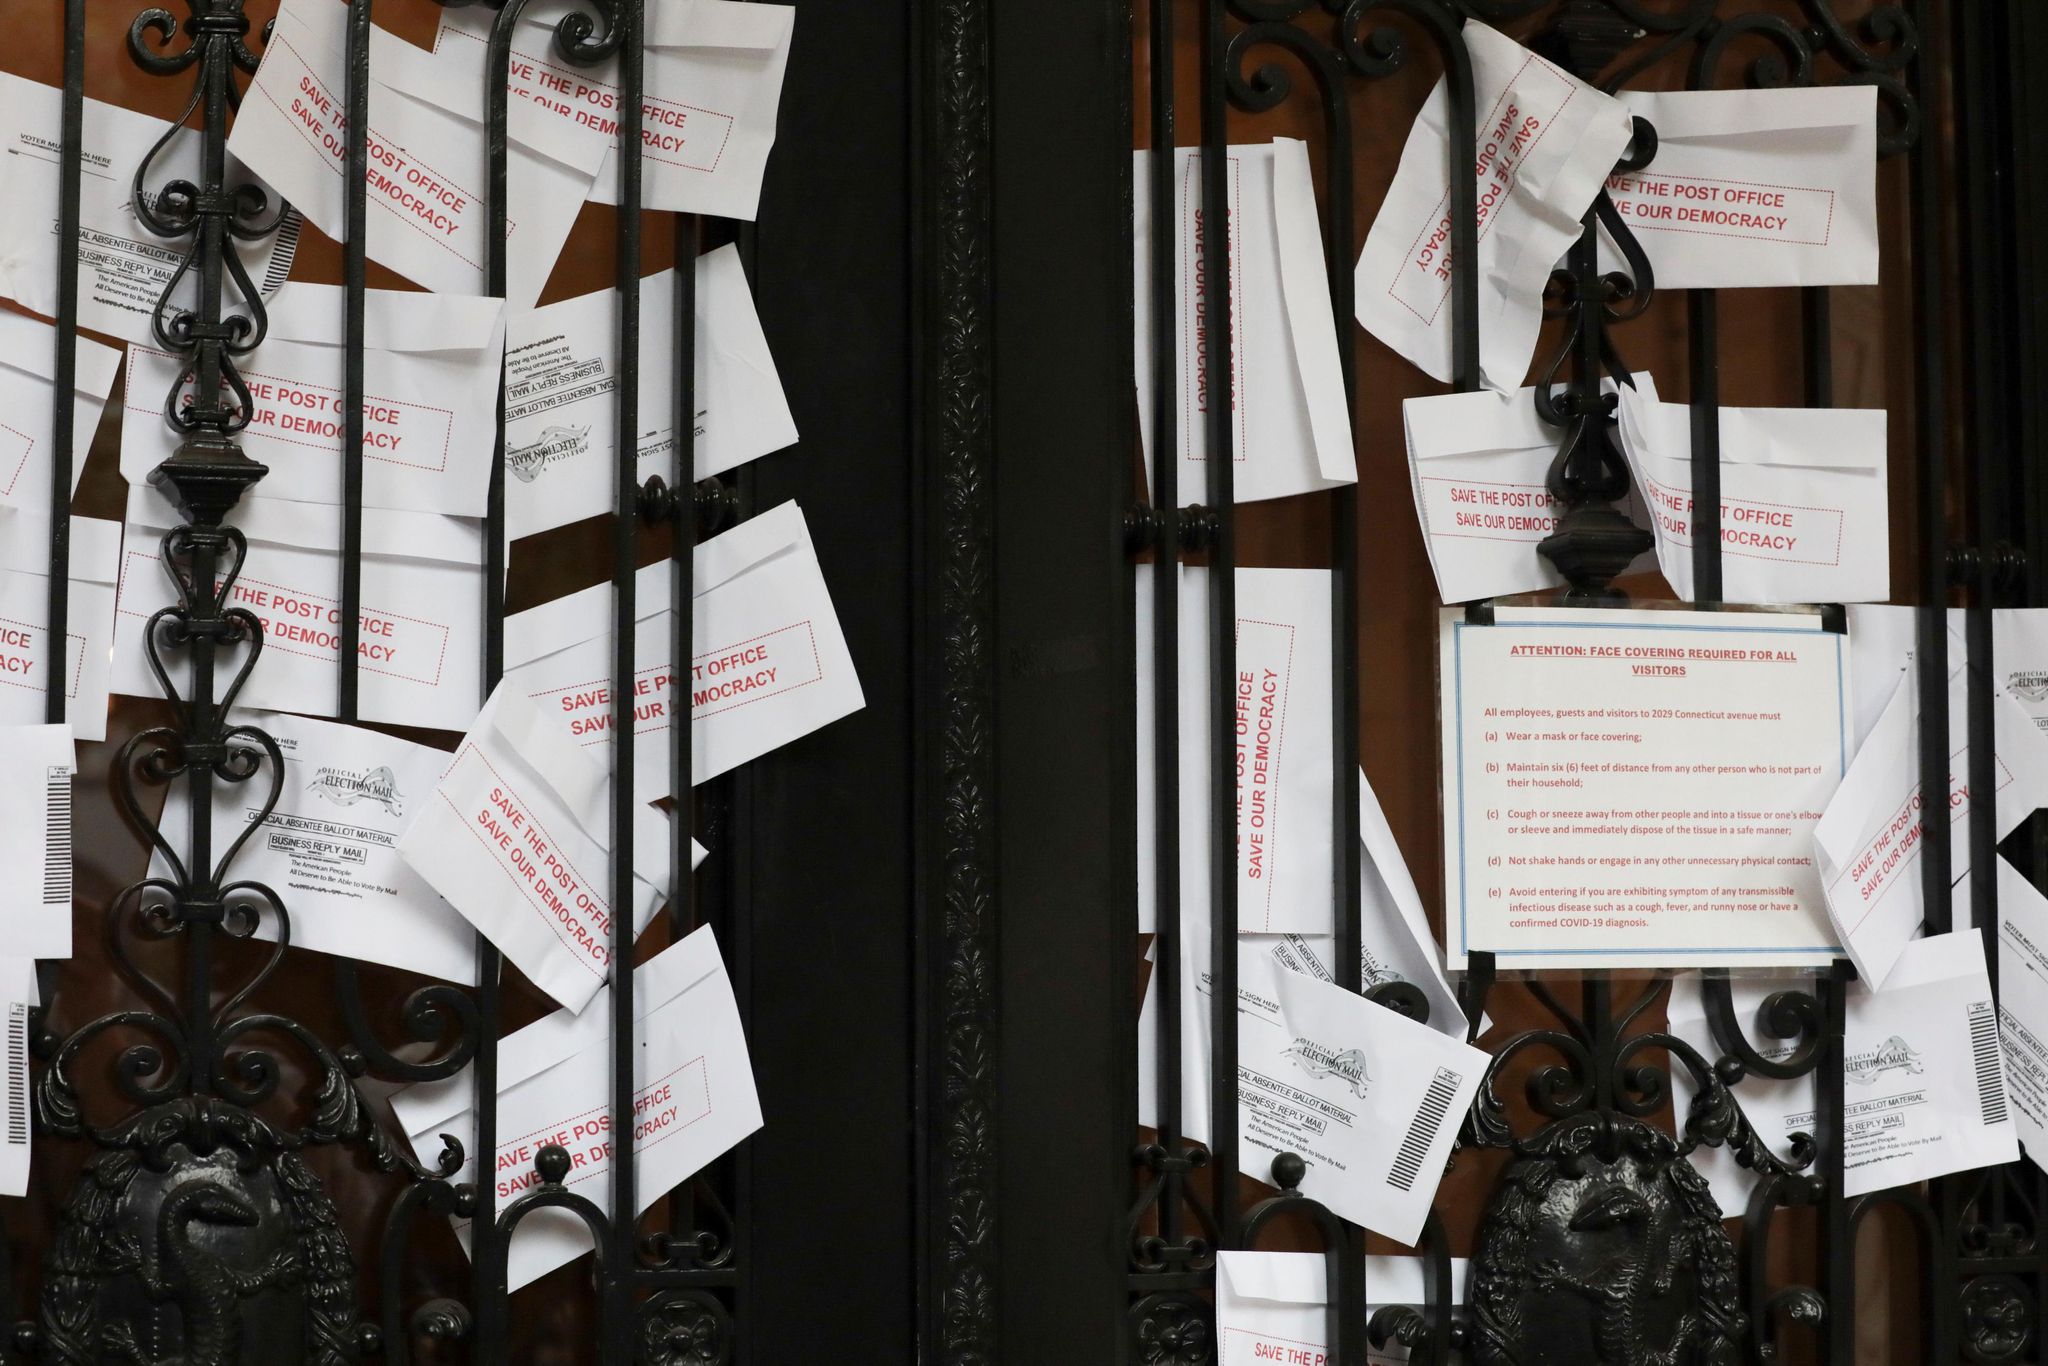 VE THE POST OFFICE
VE OUR DEMOCRACY
SAVE THE POST OFFICE
SAVE OUR DEMOCRACY
VOTER MUST SIGN HERE
OFFICIAL ABSENTEE BALLOT MAT
BUSINESS REPLY MAIL
The American People
All Deserve to Be Able to Vote
THE POST OFFICE
OUR DEMOCRACY
All Deserve to Be Able
The American People
BUSINESS REPLY MAIL
CIAL ABSENTEE BALLOT MATE
OFFICIAL
ELECTION MAIL
THE POST OFFICE
R DEMOCRACY
ICE
ACY
SAVE THE POST OFFICE
SAVE OUR DEMOCRACY
SIGN HERE
OFFICIAL
ELECTION MAIL
OFFICIAL ABSENTEE BALLOT MATERIAL
BUSINESS REPLY MAIL
The American People
All Deserve to Be Able to Vote By Mail
SAVE THE POST OFFICE
SAVE OUR DEMOCRACY
SAVE THE POST OFFICE
SAVE OUR DEMOCRACY
SAVE OUR DEMOCRACY
SAVE THE POST
SAVE OUR
CRACY
AVE THE POST OFFICE
VE OUR DEMOCRACY
SAVE THE POST OF
SAVE OUR DEMOCR
THE POST OFFICE
OUR DEMOCRACY
THE POST OFFICE
SAVE OUR DEMOCRACY
ATTENTION: FACE COVERING REQUIRED FOR ALL
VISITORS
All employees, guests and visitors to 2029 Connecticut avenue must
(a) Wear a mask or face covering;
(b) Maintain six (6) feet of distance from any other person who is not part of
their household;
(c) Cough or sneeze away from other people and into a tissue or one's elbow
or sleeve and immediately dispose of the tissue in a safe manner;
(d) Not shake hands or engage in any other unnecessary physical contact;
(e) Avoid entering if you are exhibiting symptom of any transmissible
infectious disease such as a cough, fever, and runny nose or have a
confirmed COVID-19 diagnosis.
SAVE THE POST OF
SAVE OUR DEM
ACY
SIGN HERE
OFFICIAL
ELECTION MAIL
CIAL ABSENTEE BALLOT MATERIAL
BUSINESS REPLY MAIL
The American People
All Deserve to Be Able to Vote By Mail
ELECTION MAIL
OFFICIAL
ENTEE BALLOT MATERIAL
SS REPLY MAIL
American People
to Be Able to Vote By Mail
VOTER MUST SIGN
BUSINESS REPLY
SAVE THE PO